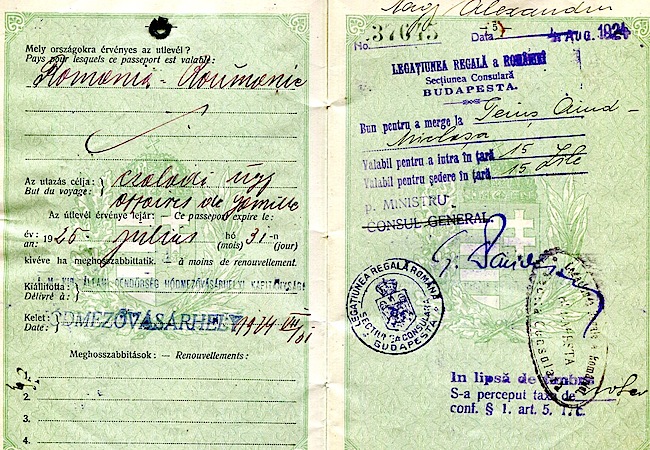 Mely országokra érvényes az utlevél?
Pays pour lesquels ce passeport est valable:
Románia - Roumanie
Az utazás célja:
But du voyage:
családi ügy
affaires de famille
Az útlevél érvénye lejár: — Ce passeport expire le:
év: an: 1925 július hó (mois) 31-n (jour)
kivéve ha meghosszabbittatik. à moins de renouvellement.
Kiállította:
Délivré à:
M. KIR. ÁLLAMI RENDŐRSÉG HÓDMEZŐVÁSÁRHELYI KAPITÁNYSÁGA
Kelet:
Date:
ÓDMEZŐVÁSÁRHELY 1924 VII
Meghosszabbitások: — Renouvellements:
1.
2.
3.
4.
Nagy Alexandru
No. 37645 Data 4 AUG. 1924
LEGAȚIUNEA REGALĂ a ROMÂNIEI
Secțiunea Consulară
BUDAPESTA.
Bun pentru a merge la
Valabil pentru a intra în țară 15
Valabil pentru ședere în țară 15 zile
p. MINISTRU
CONSUL GENERAL.
LEGAȚIUNEA REGALĂ ROMÂNĂ
SECȚIA CONSULARĂ
BUDAPESTA
BUDAPESTA
In lipsă de timbre
S-a perceput taxa de
conf. § 1. art. 5. T. C.